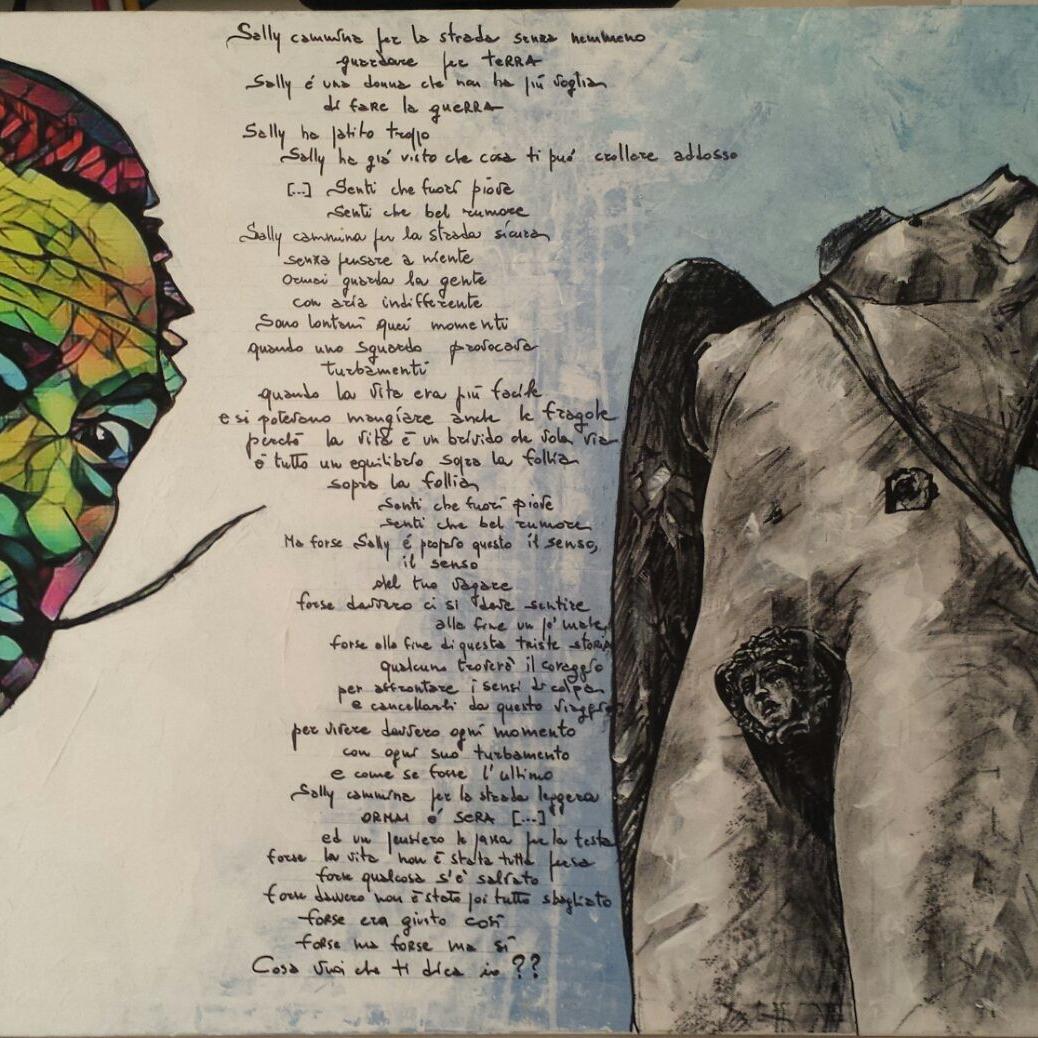 Sally cammina per la strada senza nemmeno
guardare per teRRA
Sally é una donna che non ha più voglia
di fare la gueRRA
Sally ha patito troppo
Sally ha giá visto che cosa ti puó crollare addosso
[...] Senti che fuori piove
senti che bel rumore
Sally cammina per la strada sicura
senza pensare a niente
ormai guarda la gente
con aria indifferente
Sono lontani quei momenti
quando uno sguardo provocava
turbamenti
quando la vita era più facile
e si potevano mangiare anche le fragole
perchè la vita è un brivido che vola via
è tutto un equilibrio sopra la follia
sopra la follia
senti che fuori piove
senti che bel rumore
Ma forse Sally é proprio questo il senso,
il senso
del tuo vagare
forse davvero ci si deve sentire
alla fine un po' male,
forse alla fine di questa triste storia
qualcuno troverà il coraggio
per affrontare i sensi di colpa
e cancellarli da questo viaggio
per vivere davvero ogni momento
con ogni suo turbamento
e come se fosse l'ultimo
Sally cammina per la strada leggera
ORMAI é SERA [...]
ed un pensiero le passa per la testa
forse la vita non è stata tutta persa
forse qualcosa s'è salvato
forse davvero non è stato poi tutto sbagliato
forse era giusto così
forse ma forse ma sì
Cosa vuoi che ti dica io ??